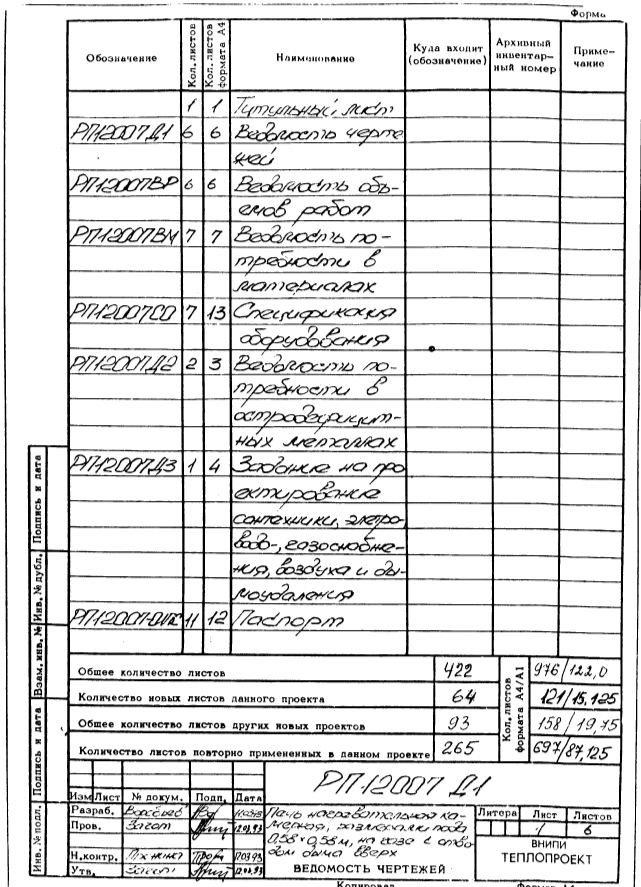 Форма
Обозначение
Кол. листов
Кол. листов формата А4
Наименование
Куда входит (обозначение)
Архивный инвентарный номер
Примечание
1 1 Титульный лист
РП12007Д1 6 6 Ведомость черте
жей
РП12007ВР 6 6 Ведомость объ-
емов работ
РП12007ВМ 7 7 Ведомость по-
требности в
материалах
РП12007СО 7 13 Спецификация
оборудования
РП12007Д2 2 3 Ведомость по-
требности в
остродефицит-
ных металлах
РП12007Д3 1 4 Задание на про
ектирование
сантехники, электро,
водо-, газоснабже-
ния, воздуха и ды-
моудаления
11 12 Паспорт
Общее количество листов 422
Количество новых листов данного проекта 64
Общее количество листов других новых проектов 93
Количество листов повторно примененных в данном проекте 265
Кол. листов формата А4/А1
976/122,0
121/15,125
158/19,75
697/87,125
РП12007 Д1
Изм Лист № докум. Подп. Дата
Разраб.
Пров.
Н.контр.
Утв.
Печь нагревательная ка-
мерная, размерами пода
0,58×0,58м, на газе с отво
дом дыма вверх
ВЕДОМОСТЬ ЧЕРТЕЖЕЙ
Литера Лист Листов
1 6
ВНИПИ
ТЕПЛОПРОЕКТ
Копировал
Формат А4
Инв. № подл.
Подпись и дата
Взам. инв. №
Инв. № дубл.
Подпись и дата